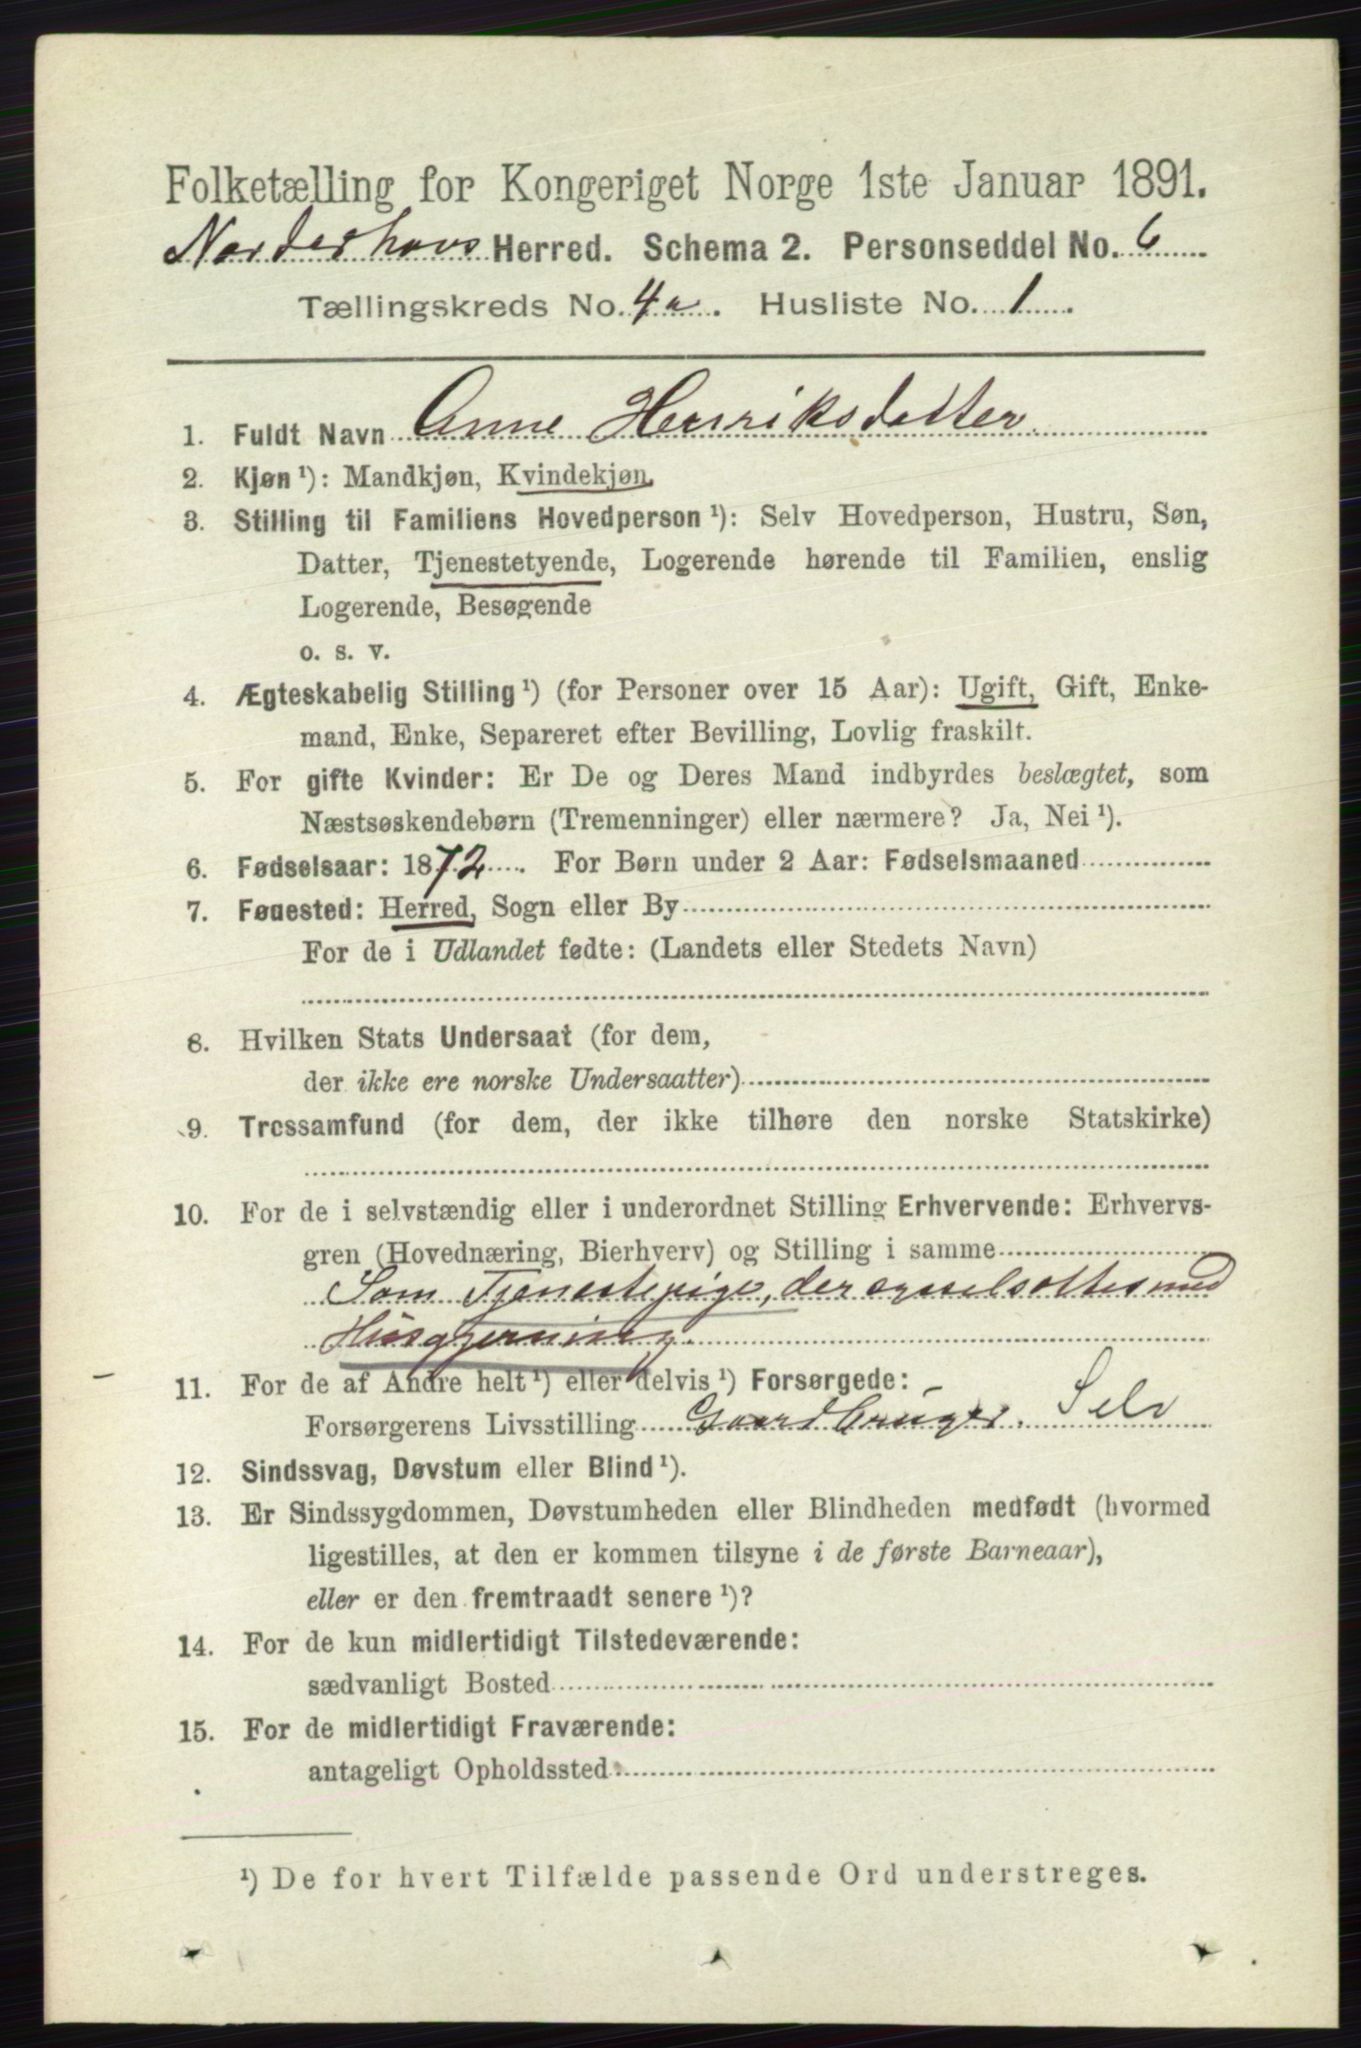 Folketælling for Kongeriget Norge 1ste Januar 1891.
Norderhovs Herred. Schema 2. Personseddel No. 6
Tællingskreds No. 4a. Husliste No. 1.
1. Fuldt Navn Anne Henriksdatter.
2. Kjøn ¹): Mandkjøn, Kvindekjøn.
3. Stilling til Familiens Hovedperson ¹): Selv Hovedperson, Hustru, Søn,
Datter, Tjenestetyende, Logerende hørende til Familien, enslig
Logerende, Besøgende
o. s. v.
4. Ægteskabelig Stilling ¹) (for Personer over 15 Aar): Ugift, Gift, Enke-
mand, Enke, Separeret efter Bevilling, Lovlig fraskilt.
5. For gifte Kvinder: Er De og Deres Mand indbyrdes beslægtet, som
Næstsøskendebørn (Tremenninger) eller nærmere? Ja, Nei ¹).
6. Fødselsaar: 1872. For Børn under 2 Aar: Fødselsmaaned
7. Fødested: Herred, Sogn eller By
For de i Udlandet fødte: (Landets eller Stedets Navn)
8. Hvilken Stats Undersaat (for dem,
der ikke ere norske Undersaatter)
9. Trossamfund (for dem, der ikke tilhøre den norske Statskirke)
10. For de i selvstændig eller i underordnet Stilling Erhvervende: Erhvervs-
gren (Hovednæring, Bierhverv) og Stilling i samme
Som Tjenestepige, der sysselsættes med
Husgjerning
11. For de af Andre helt ¹) eller delvis ¹) Forsørgede:
Forsørgerens Livsstilling Gaardbruger. Selv
12. Sindssvag, Døvstum eller Blind ¹).
13. Er Sindssygdommen, Døvstumheden eller Blindheden medfødt (hvormed
ligestilles, at den er kommen tilsyne i de første Barneaar),
eller er den fremtraadt senere ¹)?
14. For de kun midlertidigt Tilstedeværende:
sædvanligt Bosted
15. For de midlertidigt Fraværende:
antageligt Opholdssted
¹) De for hvert Tilfælde passende Ord understreges.